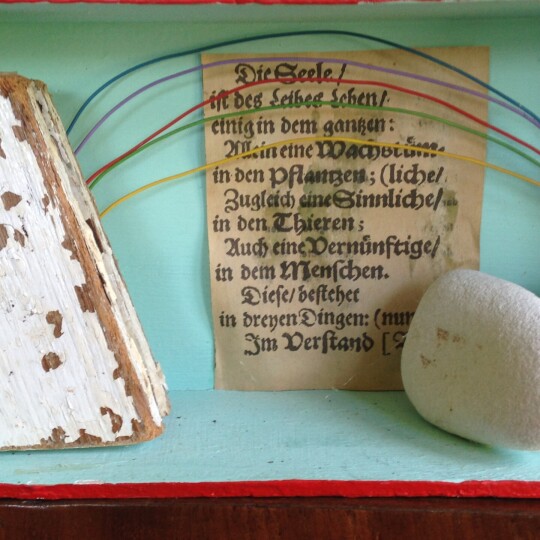 Die Seele/
ist des Leibes Leben/
einig in dem gantzen:
Allein eine Wachstüm-
in den Pflantzen; (liche/
Zugleich eine Sinnliche/
in den Thieren;
Auch eine Vernünftige/
in dem Menschen.
Diese/ bestehet
in dreyen Dingen: (nur
Im Verstand [